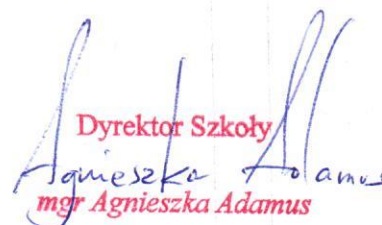 Dyrektor Szkoły
Agnieszka Adamus
mgr Agnieszka Adamus